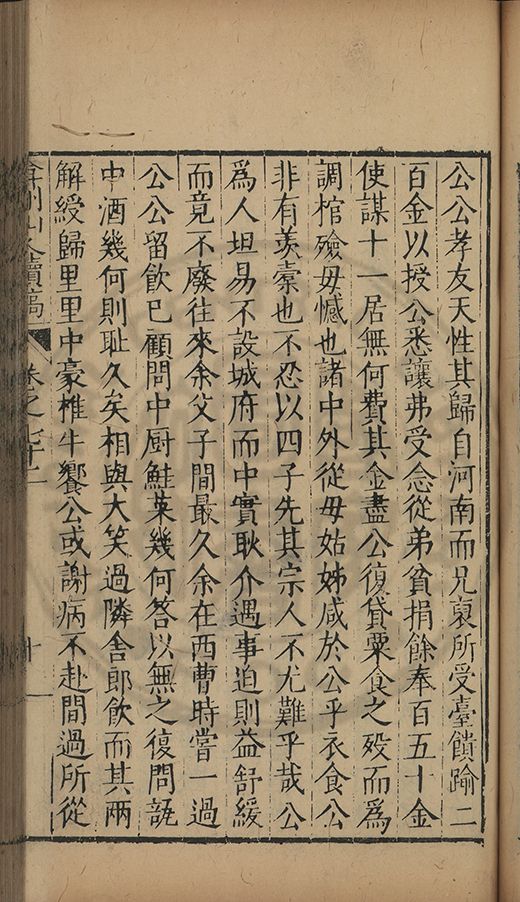 公公孝友天性其歸自河南而兄裒所受臺饋踰二
百金以授公悉讓弗受念從弟貧捐餘奉百五十金
使謀十一居無何費其金盡公復貸粟食之歿而爲
調棺殮毋憾也諸中外從毋姑姊咸於公乎衣食公
非有羨橐也不忍以四子先其宗人不尤難乎哉公
爲人坦易不設城府而中實耿介遇事迫則益舒緩
而竟不廢往來余父子間最久余在西曹時嘗一過
公公留飲已顧問中厨鮭菜幾何答以無之復問瓿
中酒幾何則耻久矣相與大笑過隣舎郎飲而其兩
解綬歸里里中豪椎牛饗公或謝病不赴間過所從
弇州山人續稿
卷之七十二
十一